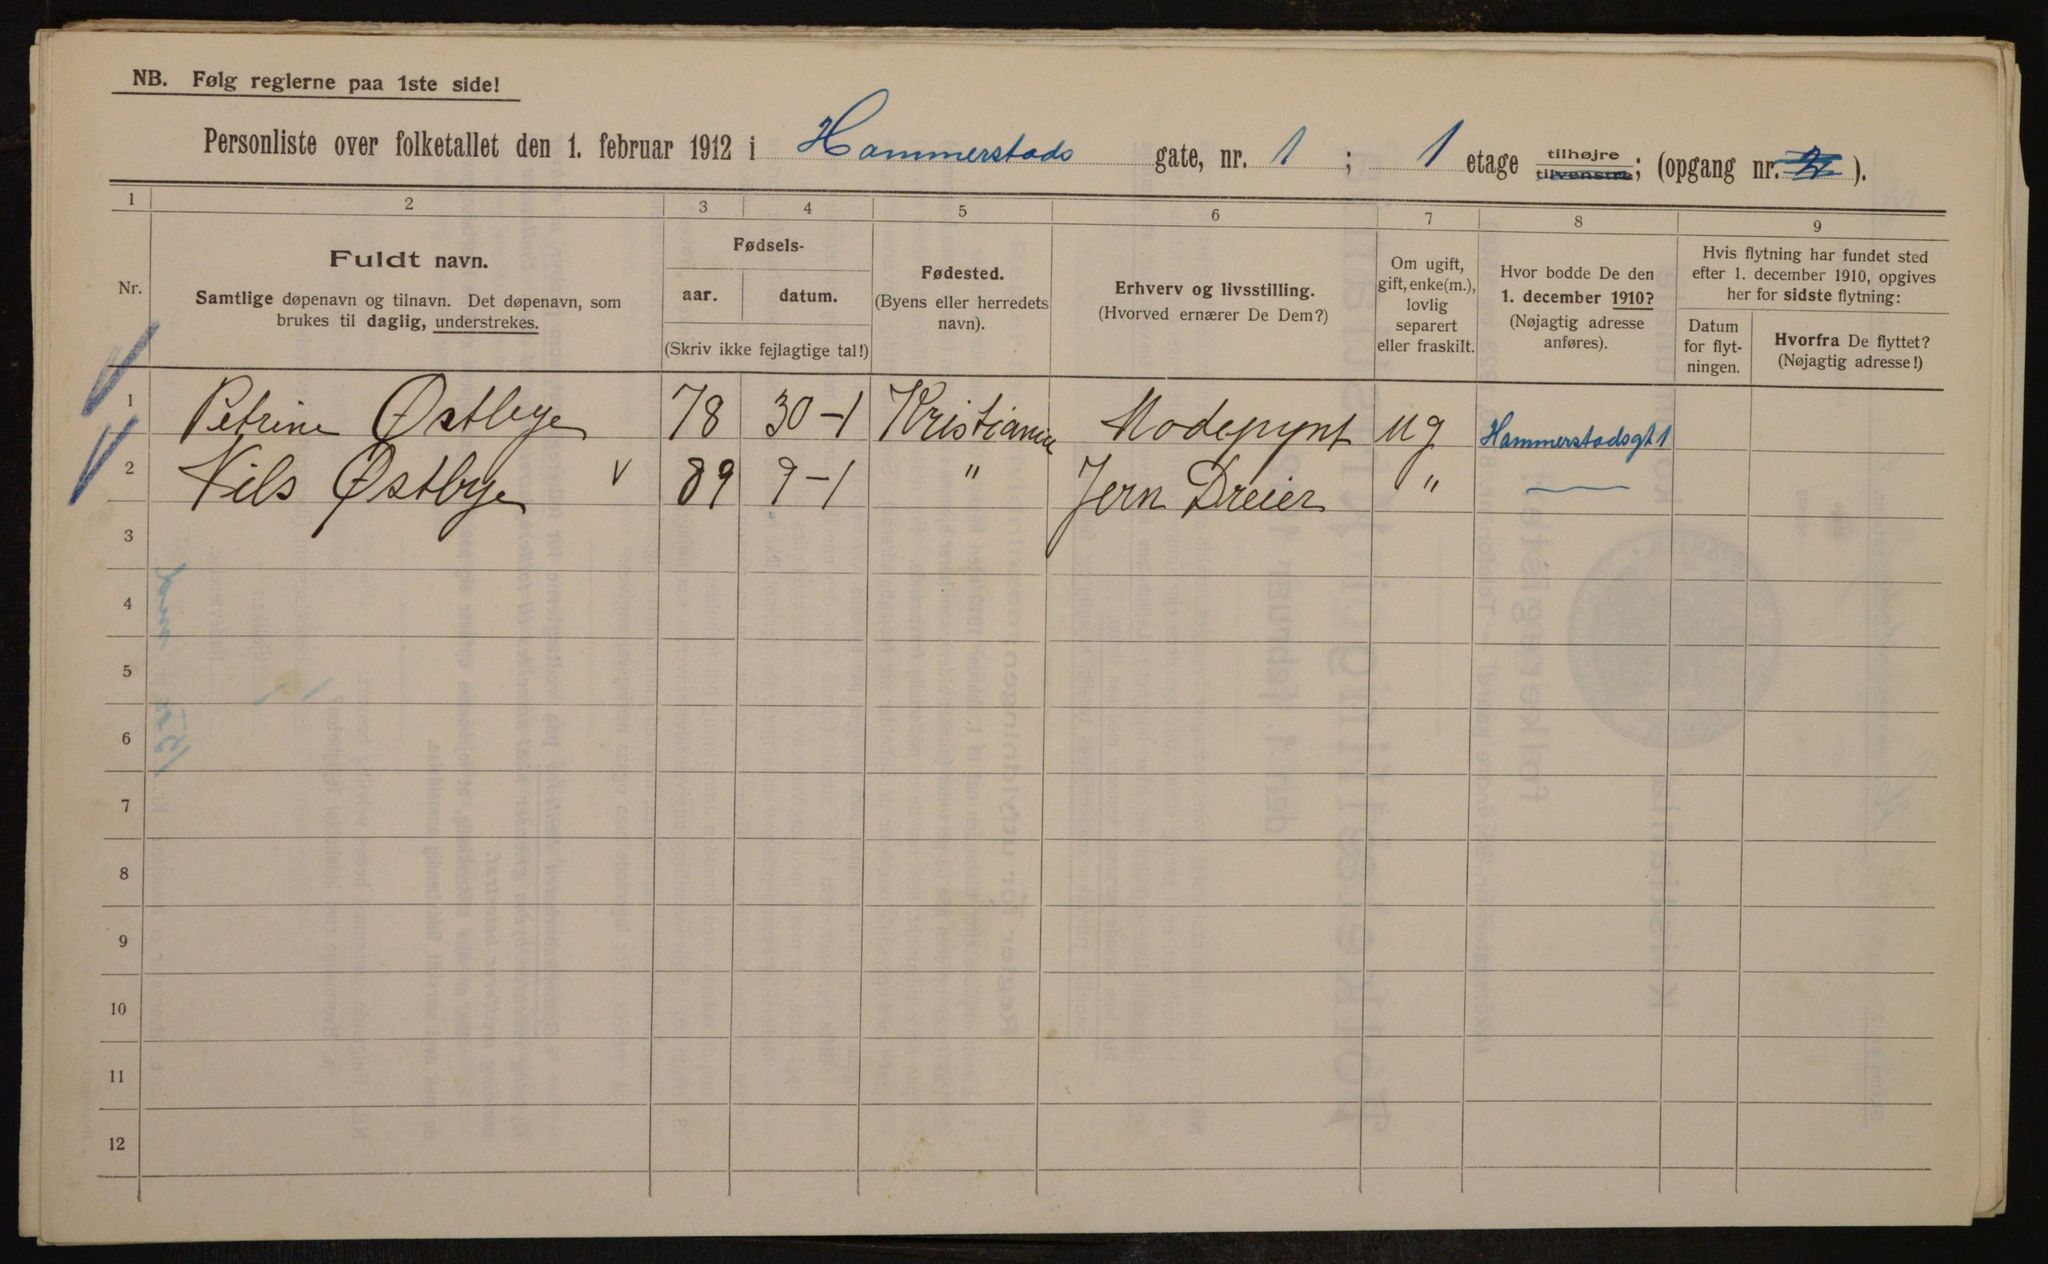 NB. Følg reglerne paa 1ste side!
Personliste over folketallet den 1. februar 1912 i Hammerstads gate, nr. 1 ; 1 etage tilhøjre tilvenstre; (opgang nr. 2 ).
1 2 3 4 5 6 7 8 9
Nr.
Fuldt navn.
Samtlige døpenavn og tilnavn. Det døpenavn, som
brukes til daglig, understrekes.
Fødsels-
aar. datum.
(Skriv ikke fejlagtige tal!)
Fødested.
(Byens eller herredets
navn).
Erhverv og livsstilling.
(Hvorved ernærer De Dem?)
Om ugift,
gift, enke(m.),
lovlig
separert
eller fraskilt.
Hvor bodde De den
1. december 1910?
(Nøjagtig adresse
anføres).
Hvis flytning har fundet sted
efter 1. december 1910, opgives
her for sidste flytning:
Datum
for flyt-
ningen.
Hvorfra De flyttet?
(Nøjagtig adresse!)
1 Petrine Østbye 78 30-1 Kristiania Modepynt ug Hammerstadsgt 1
2 Nils Østbye v 89 9-1 " Jern Dreier " —
3
4
5
6
7
8
9
10
11
12